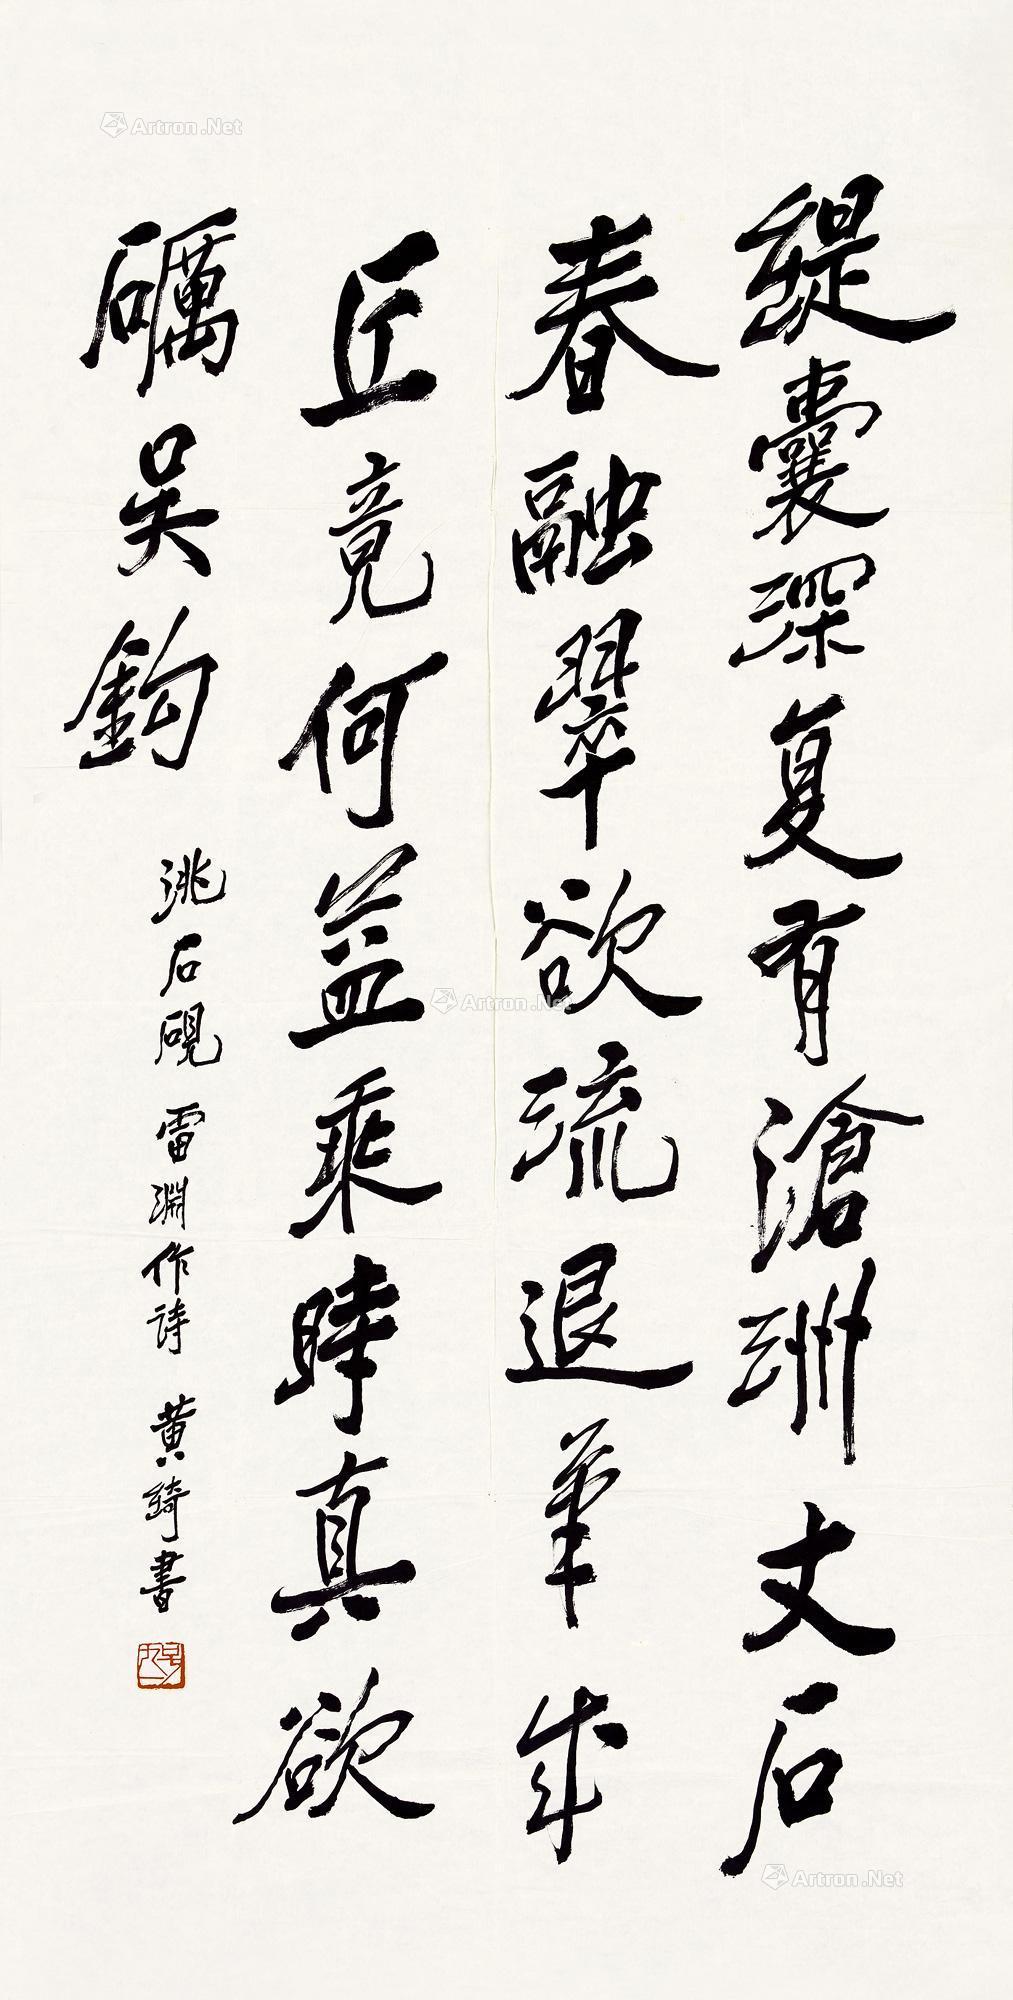 缇囊深夏有滄洲文石
春融翠欲流退筆成
丘竟何益乘時真欲
礪吳鉤
洮石硯 雷淵作诗 黄綺書
Artron.Net
Artron.Net
Artron.Net